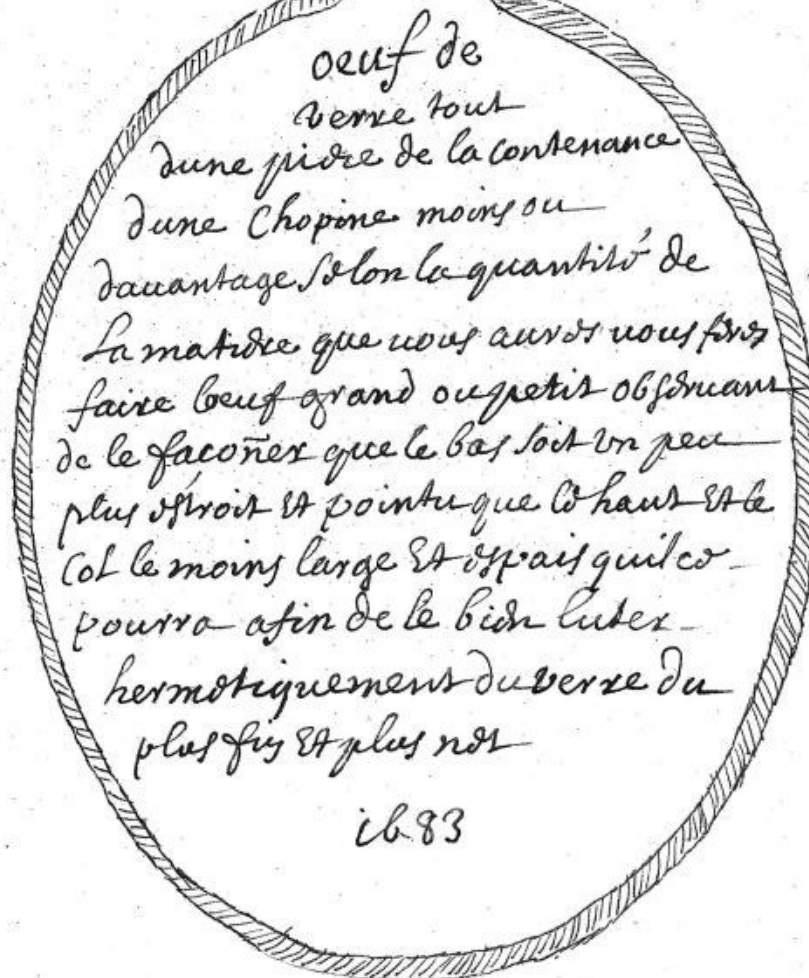 oeuf de
verre tout
dune piece de la contenance
dune Chopine moins ou
dauantage selon la quantité de
La matiere que uous aures uous feres
faire loeuf grand ou petit obseruant
de le façoñer que le bas soit un peu
plus estroit Et pointu que le haut Et le
Col le moins large Et espais quil ce
pourra afin de le bien luter
hermetiquement du verre du
plus fin Et plus net
1683